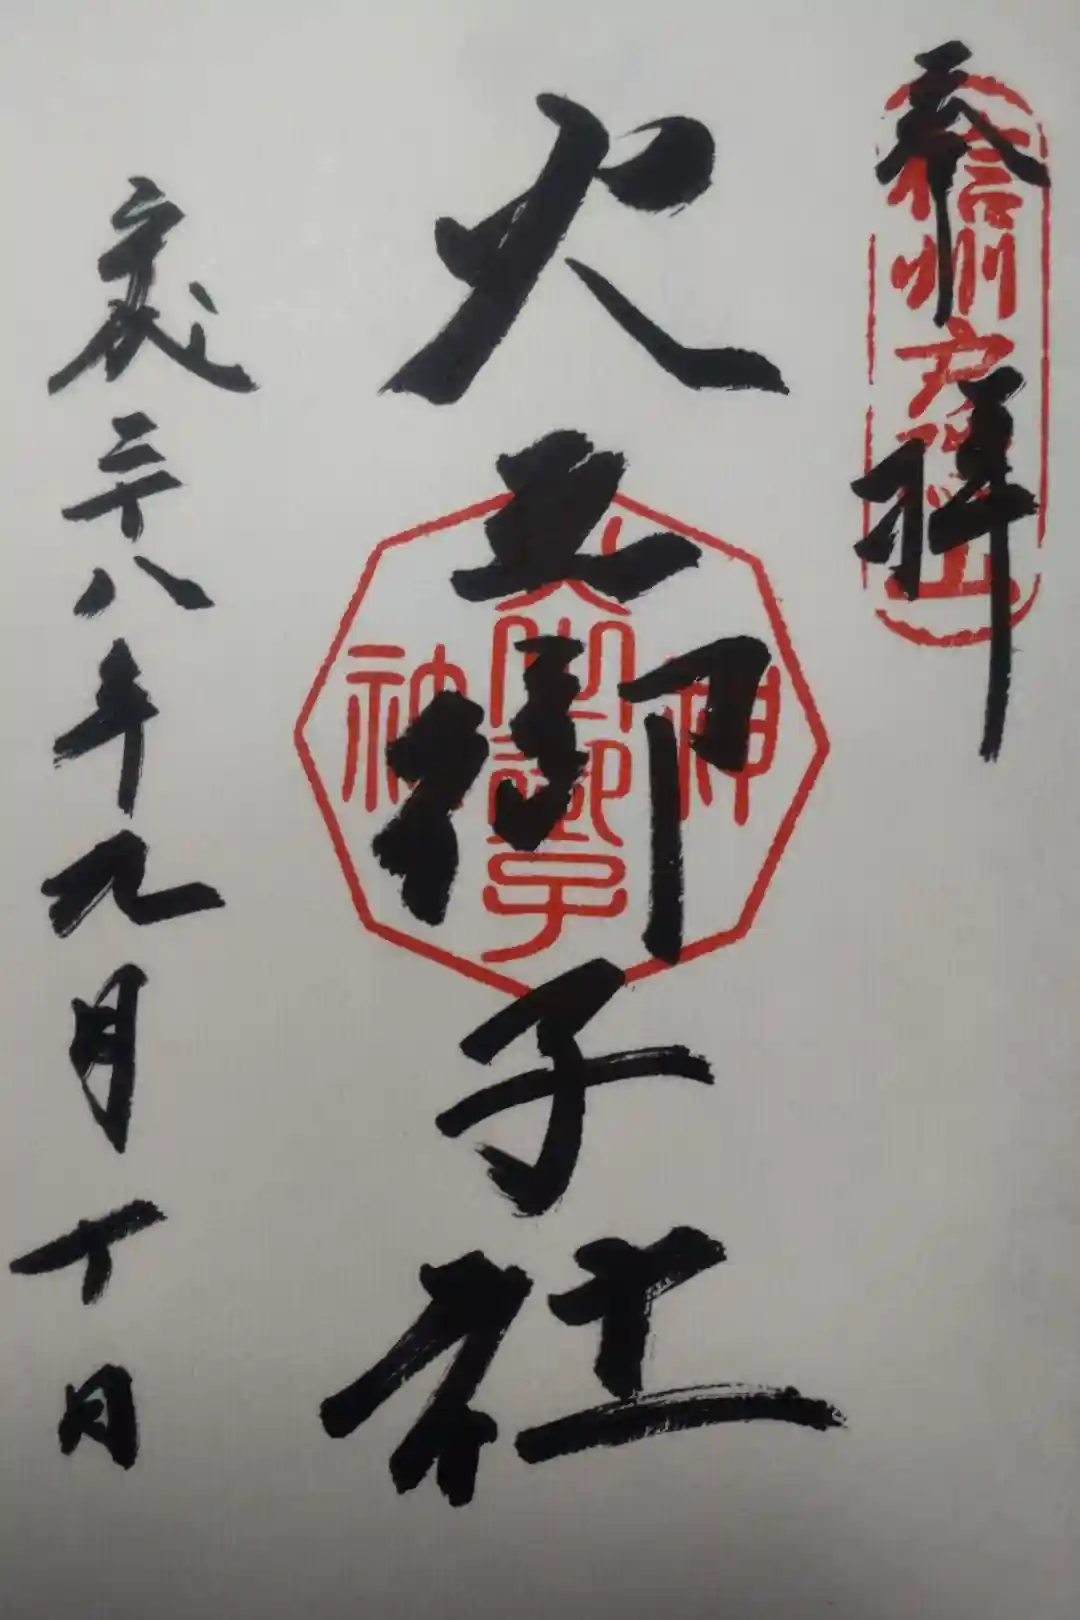 奉拝
信州戸隠山
火之御子社
火之御子
神
平成二十八年九月十日